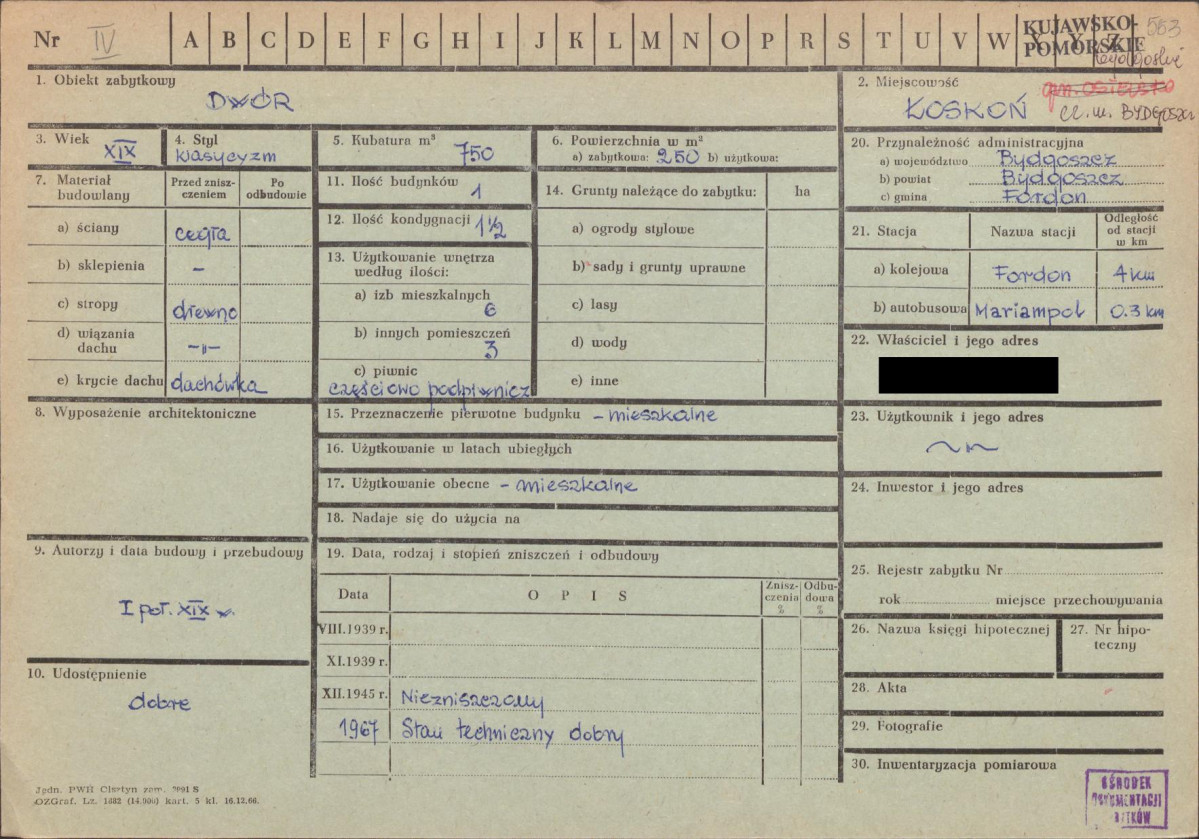 Nr IV A B C D E F G H I J K L M N O P R S T U V W Y Z
KUJAWSKO-
POMORSKIE
553
1. Obiekt zabytkowy
DWÓR
2. Miejscowość
gm. OSIELSKO
ŁOSKOŃ
3. Wiek
XIX
4. Styl
klasycyzm
5. Kubatura m³
750
6. Powierzchnia w m²
a) zabytkowa: 250 b) użytkowa:
7. Materiał
budowlany
Przed znisz-
czeniem
Po
odbudowie
a) ściany cegła
b) sklepienia –
c) stropy drewno
d) wiązania
dachu –„–
e) krycie dachu dachówka
8. Wyposażenie architektoniczne
9. Autorzy i data budowy i przebudowy
I poł. XIX w.
10. Udostępnienie
dobre
11. Ilość budynków
1
12. Ilość kondygnacji 1½
13. Użytkowanie wnętrza
według ilości:
a) izb mieszkalnych
6
b) innych pomieszczeń
3
c) piwnic
częściowo podpiwnicz
14. Grunty należące do zabytku: ha
a) ogrody stylowe
b) sady i grunty uprawne
c) lasy
d) wody
e) inne
15. Przeznaczenie pierwotne budynku – mieszkalne
16. Użytkowanie w latach ubiegłych
17. Użytkowanie obecne – mieszkalne
18. Nadaje się do użycia na
19. Data, rodzaj i stopień zniszczeń i odbudowy
Data OPIS
Znisz-
czenia
%
Odbu-
dowa
%
VIII.1939 r.
XI.1939 r.
XII.1945 r. Niezniszczony
1967 Stan techniczny dobry
20. Przynależność administracyjna
a) województwo Bydgoszcz
b) powiat Bydgoszcz
c) gmina Fordon
21. Stacja Nazwa stacji
Odległość
od stacji
w km
a) kolejowa Fordon 4 km
b) autobusowa Mariampol 0.3 km
22. Właściciel i jego adres
23. Użytkownik i jego adres
~„~
24. Inwestor i jego adres
25. Rejestr zabytku Nr
rok miejsce przechowywania
26. Nazwa księgi hipotecznej
27. Nr hipo-
teczny
28. Akta
29. Fotografie
30. Inwentaryzacja pomiarowa
Jedn. PWR Olsztyn zam.
OZGraf. Lz. 1882 (14.000) kart. 5 kl. 16.12.66.
OŚRODEK
DOKUMENTACJI